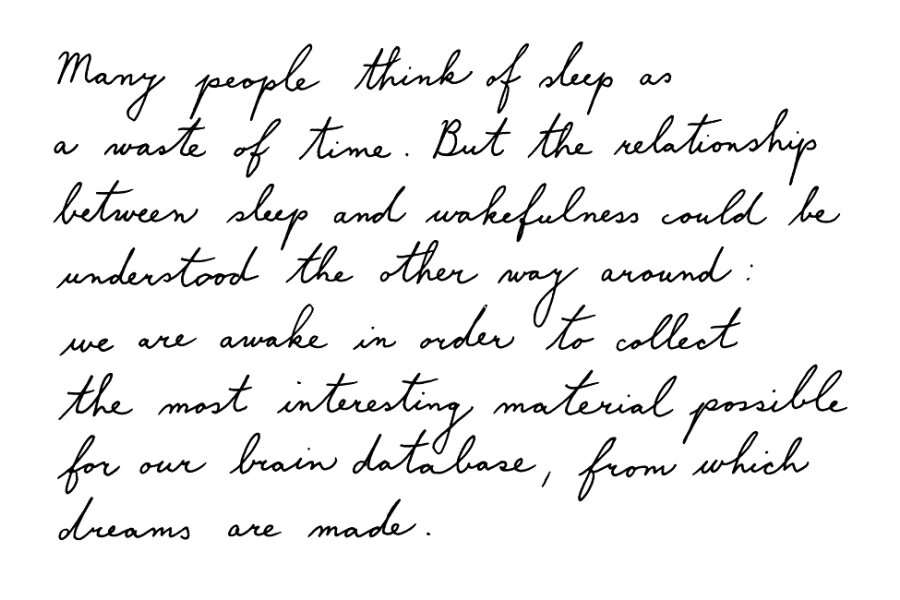 Many people think of sleep as
a waste of time. But the relationship
between sleep and wakefulness could be
understood the other way around:
we are awake in order to collect
the most interesting material possible
for our brain database, from which
dreams are made.